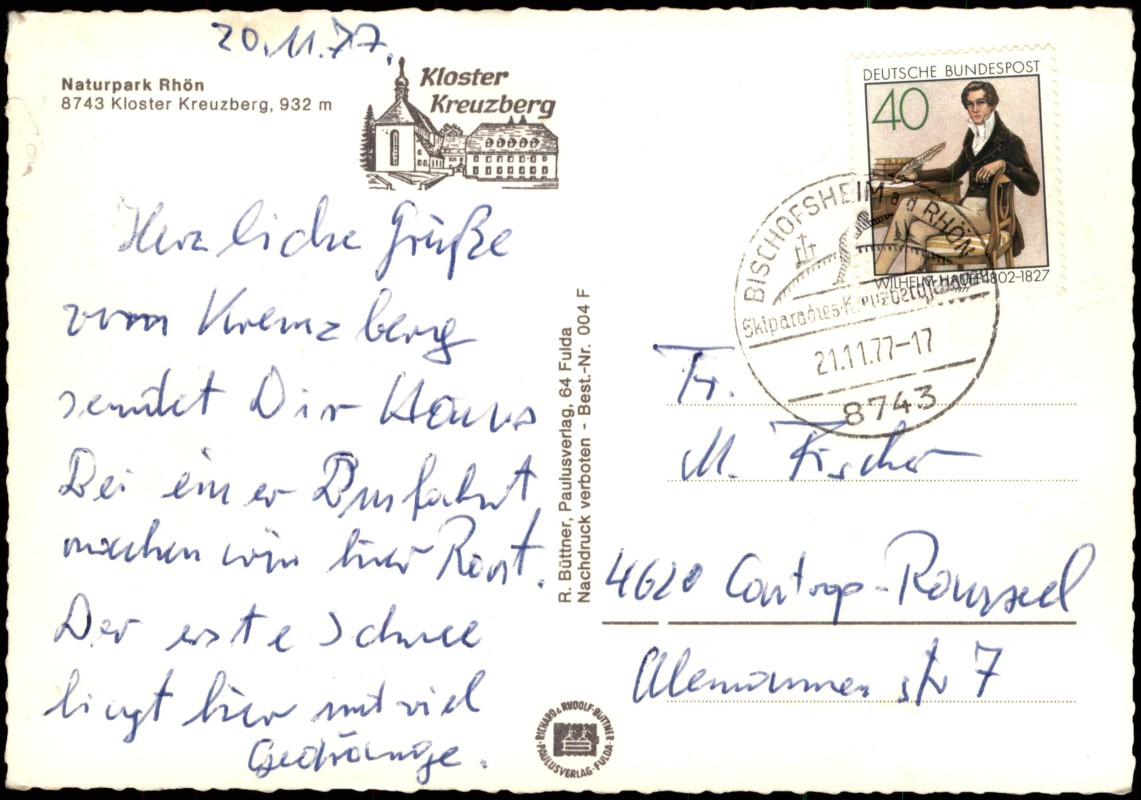 20.11.77.
Naturpark Rhön
8743 Kloster Kreuzberg, 932 m
Kloster
Kreuzberg
Herzliche Grüße
vom Kreuzberg
sendet Dir Hans
Bei einer Busfahrt
machen wir hier Rast.
Der erste Schnee
liegt hier mit viel
Gedränge.
R. Büttner, Paulusverlag, 64 Fulda
Nachdruck verboten - Best.-Nr. 004 F
RICHARD & RUDOLF BÜTTNER
PAULUSVERLAG · FULDA
DEUTSCHE BUNDESPOST
40
WILHELM HAUFF 1802-1827
BISCHOFSHEIM a d RHÖN
Skiparadies-Kreuzberg
21.11.77-17
8743
Fr.
M. Fischer
4620 Castrop-Rauxel
Alemannenstr 7